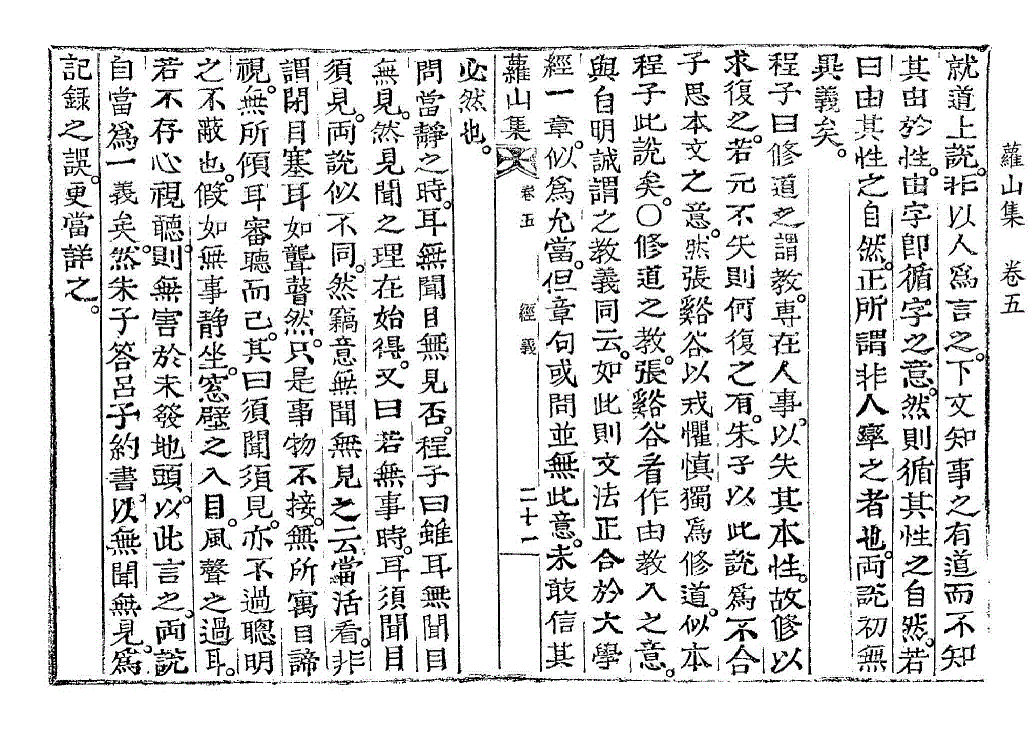 蘿山集　卷五
就道上說。非以人爲言之。下文知事之有道而不知
其由於性。由字卽循字之意。然則循其性之自然。若
曰由其性之自然。正所謂非人率之者也。兩說初無
異義矣。
程子曰修道之謂教。專在人事。以失其本性。故修以
求復之。若元不失則何復之有。朱子以此說爲不合
子思本文之意。然張谿谷以戒懼愼獨爲修道。似本
程子此說矣。〇修道之教。張谿谷看作由教入之意。
與自明誠謂之教義同云。如此則文法正合於大學
經一章。似爲允當。但章句或問並無此意。未敢信其
蘿山集　卷五　經義　二十一
必然也。
問當靜之時。耳無聞目無見否。程子曰雖耳無聞目
無見。然見聞之理在始得。又曰若無事時。耳須聞目
須見。兩說似不同。然竊意無聞無見之云當活看。非
謂閉目塞耳如聾瞽然。只是事物不接。無所寓目諦
視。無所傾耳審聽而已。其曰須聞須見。亦不過聰明
之不蔽也。假如無事静坐。窓壁之入目。風聲之過耳。
若不存心視聽。則無害於未發地頭。以此言之。兩說
自當爲一義矣。然朱子答呂子約書。以無聞無見。爲
記錄之誤。更當詳之。